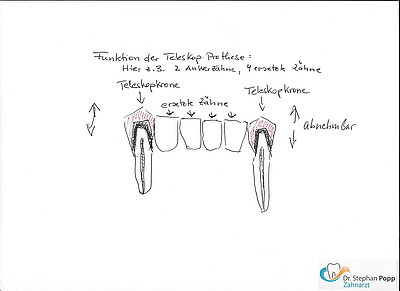 Funktion der Teleskop-Prothese:
Hier z.B. 2 Ankerzähne, 4 ersetzte Zähne
Teleskopkrone
ersetzte Zähne
Teleskopkrone
Abnehmbar
Dr. Stephan Popp
Zahnarzt